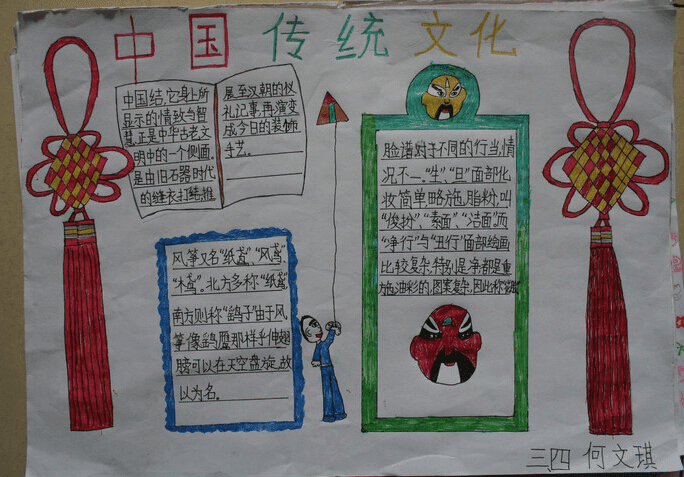 中国传统文化
中国结,它身上所
显示的情致与智
慧,正是中华古老文
明中的一个侧面.
是由旧石器时代
的缝衣打结,推
展至汉朝的仪
礼记事,再演变
成今日的装饰
手艺.
风筝又名“纸鸢”、“风鸢”、
“木鸢”。北方多称“纸鸢”
南方则称“鹞子”由于风
筝像鹞鹰那样乎伸翅
膀可以在天空盘旋,故
以为名.
脸谱对于不同的行当,情
况不一.“生”、“旦”面部化
妆简单略施脂粉,叫
“俊扮”、“素面”、“洁面”.而
“净行”与“丑行”面部绘画
比较复杂,特别是净都是重
施油彩的,图案复杂,因此称
三.四 何文琪